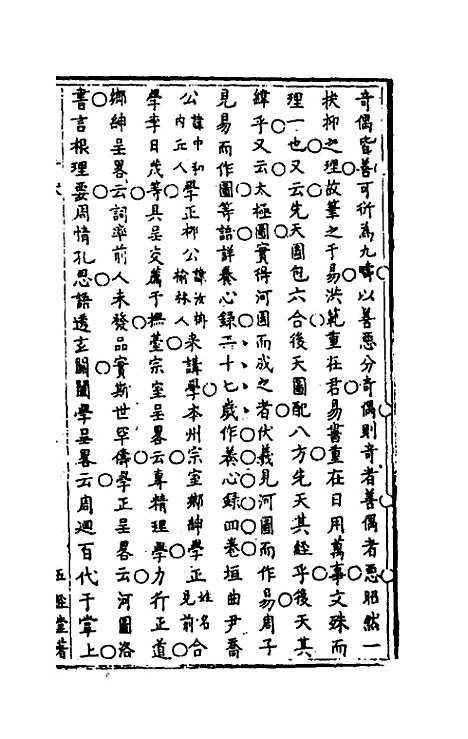 奇偶皆善可衍為九疇以善惡分奇偶則奇者善偶者惡昭然一
扶抑之理故筆之于易洪範重在君易書重在日用萬事文殊而
理一也又云先天圖包六合後天圖配八方先天其經乎後天其
緯乎又云太極圖實得河圖而成之者伏羲見河圖而作易周子
見易而作圖等語詳養心錄二十七歲作養心錄四卷垣曲尹喬
公諱中和內丘人學正柳公諱汝榆林人來講學本州宗室鄉紳學正姓名見前合
學李日茂等具呈交薦于撫臺宗室呈畧云專精理學力行正道
鄉紳呈畧云詞率前人未發品實斯世罕儔學正呈畧云河圖洛
書言根理要周情孔思語透玄關闔學呈畧云周迴百代于掌上
五經堂著